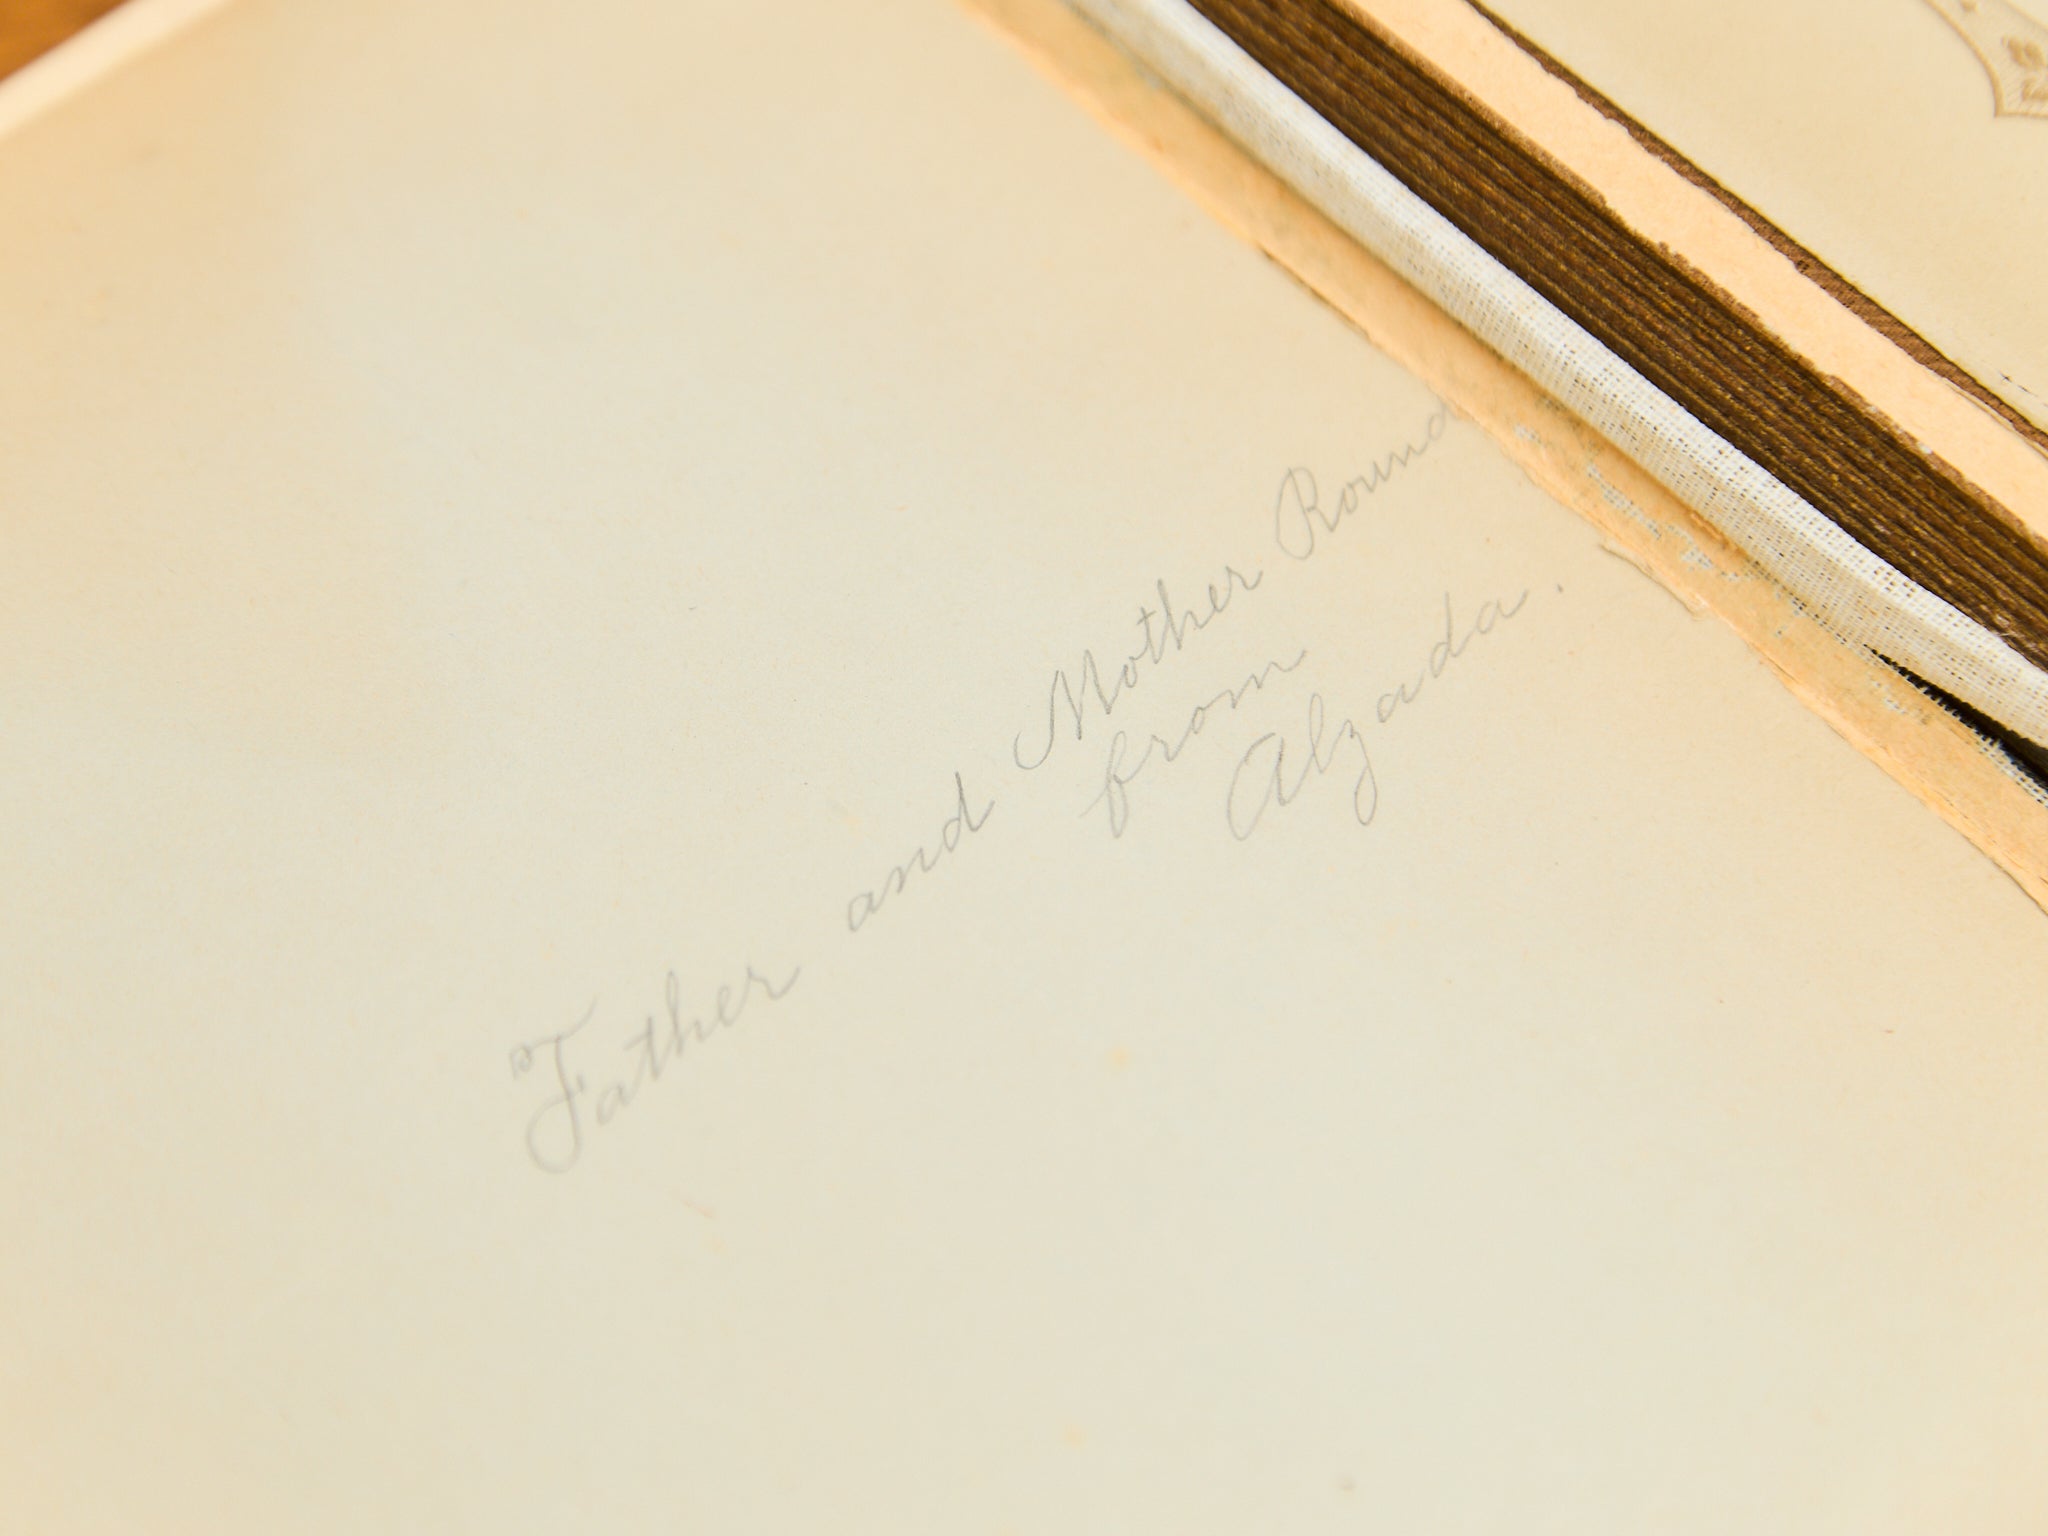 Father and Mother Round
from
Alzada.